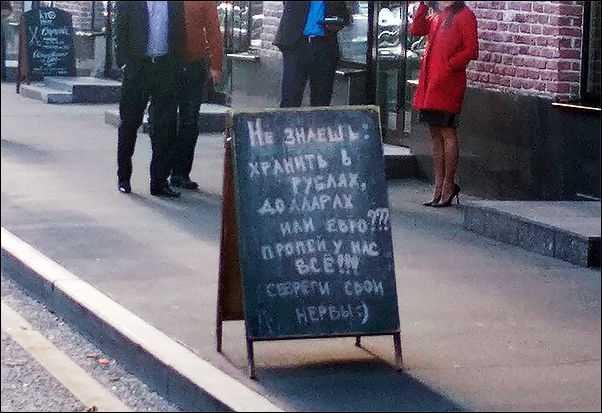 Не знаешь:
хранить в
рублях,
долларах
или евро???
пропей у нас
всё!!!
сбереги свои
нервы:)
кто